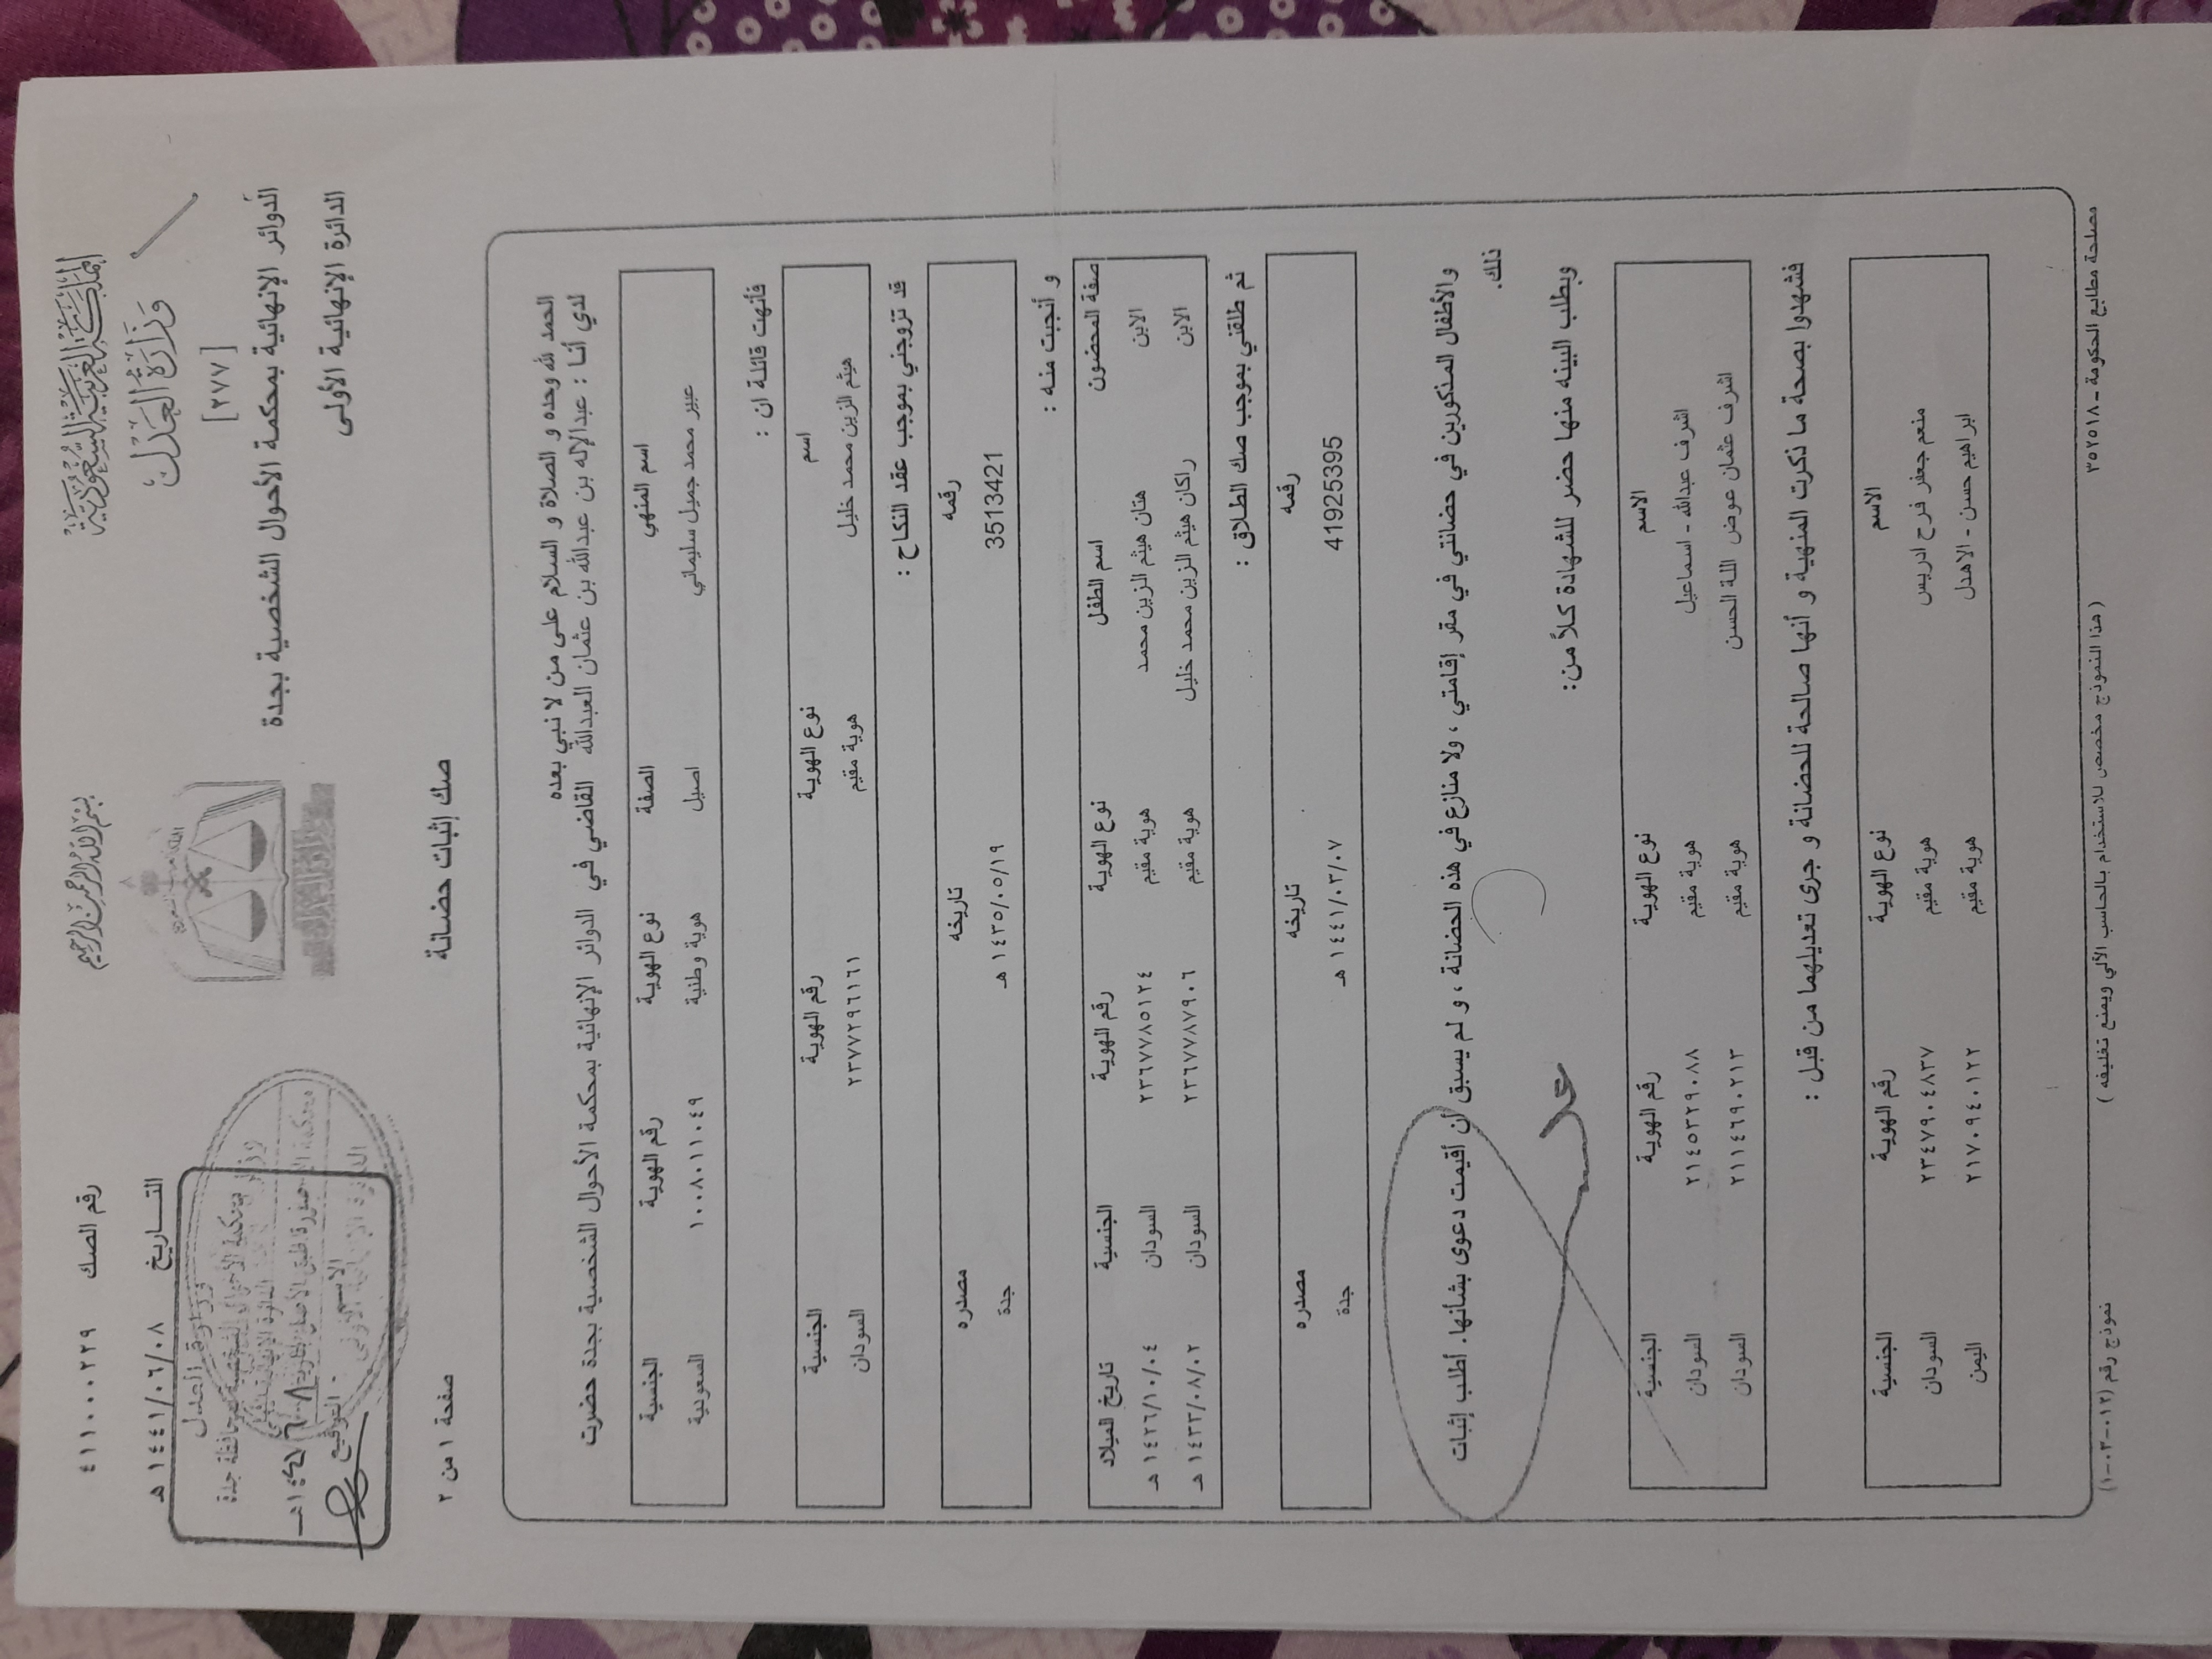 بسم الله الرحمن الرحيم
المملكة العربية السعودية
وزارة العدل
[٢٧٧]
الدوائر الإنهائية بمحكمة الأحوال الشخصية بجدة
الدائرة الإنهائية الأولى
رقم الصك ٤١١٠٠٠٢٢٩
التـــاريخ ١٤٤١/٠٦/٠٨ هـ
وزارة العدل
محكمة الأحوال الشخصية بمحافظة جدة
صورة طبق الأصل
الاسم
التوقيع
صك إثبات حضانة
صفحة ١ من ٢
الحمد لله وحده و الصلاة و السلام على من لا نبي بعده
لدي أنا : عبدالإله بن عبدالله بن عثمان العبدالله القاضي في الدوائر الإنهائية بمحكمة الأحوال الشخصية بجدة حضرت
اسم المنهي الصفة نوع الهوية رقم الهوية الجنسية
عبير محمد جميل سليماني اصيل هوية وطنية ١٠٠٨٠١١٠٤٩ السعودية
فأنهت قائلة ان :
اسم نوع الهوية رقم الهوية الجنسية
هيثم الزين محمد خليل هوية مقيم ٢٣٧٧٢٩٦١٦١ السودان
قد تزوجني بموجب عقد النكاح :
رقمه تاريخه مصدره
3513421 ١٤٣٥/٠٥/١٩ هـ جدة
و أنجبت منه :
صفة المحضون اسم الطفل نوع الهوية رقم الهوية الجنسية تاريخ الميلاد
الابن هتان هيثم الزين محمد هوية مقيم ٢٣٦٧٧٨٥١٢٤ السودان ١٤٢٦/١٠/٠٤ هـ
الابن راكان هيثم الزين محمد خليل هوية مقيم ٢٣٦٧٧٨٧٩٠٦ السودان ١٤٣٣/٠٨/٠٢ هـ
ثم طلقني بموجب صك الطلاق :
رقمه تاريخه مصدره
419255395 ١٤٤١/٠٣/٠٧ هـ جدة
والأطفال المذكورين في حضانتي في مقر إقامتي ، ولا منازع في هذه الحضانة ، و لم يسبق أن أقيمت دعوى بشأنها. أطلب إثبات
ذلك.
وبطلب البينه منها حضر للشهادة كلاً من:
الاسم نوع الهوية رقم الهوية الجنسية
اشرف عبدالله - اسماعيل هوية مقيم ٢١٤٥٣٢٩٠٨٨ السودان
اشرف عثمان عوض اللة الحسن هوية مقيم ٢١١٤٦٩٠٢١٣ السودان
فشهدوا بصحة ما ذكرت المنهية و أنها صالحة للحضانة و جرى تعديلهما من قبل :
الاسم نوع الهوية رقم الهوية الجنسية
منعم جعفر فرح ادريس هوية مقيم ٢٣٤٧٩٠٤٨٣٧ السودان
ابراهيم حسن - الاهدل هوية مقيم ٢١٧٠٩٤٠١٢٢ اليمن
مصلحة مطابع الحكومة - ٣٥٢٥١٨ ( هذا النموذج مخصص للاستخدام بالحاسب الآلي ويمنع تغليفه ) نموذج رقم (١٢-٠٣-٠١)